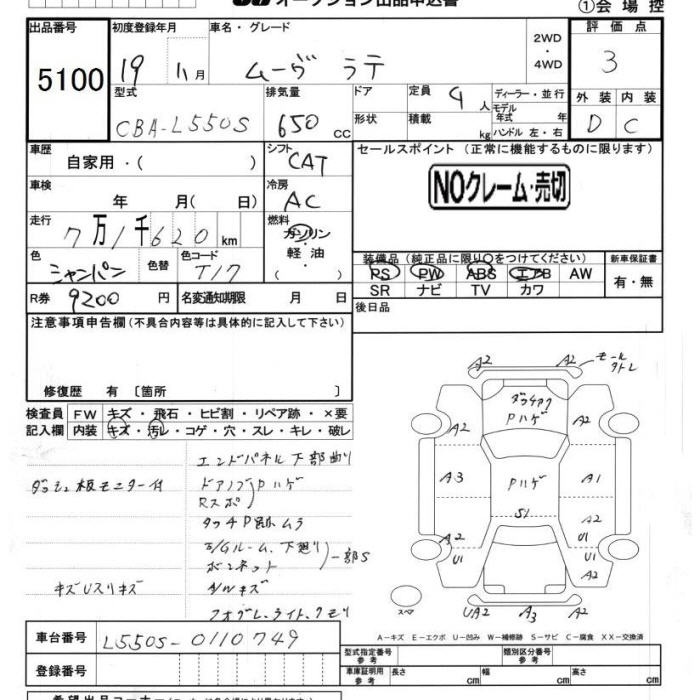 オークション出品申込書
①会場控
出品番号 5100
初度登録年月 19 11月
車名・グレード ムーヴ ラテ
2WD・4WD
評価点 3
型式 CBA-L550S
排気量 650 cc
ドア 形状
定員 4人
積載 kg
ディーラー・並行
モデル年式 年
ハンドル 左・右
外装 D
内装 C
車歴 自家用・( )
シフト CAT
セールスポイント (正常に機能するものに限ります)
NOクレーム・売切
車検 年 月( 日)
冷房 AC
走行 7万1千620km
燃料 ガソリン・軽油・( )
色 シャンパン
色替
色コード T17
装備品(純正品に限り○をつけてください)
PS PW ABS エアB AW
SR ナビ TV カワ
新車保証書 有・無
R券 9200円
名変通知期限 月 日
後日品
注意事項申告欄(不具合内容等は具体的に記入して下さい)
修復歴 有 〔箇所 〕
検査員記入欄
FW キズ・飛石・ヒビ割・リペア跡・×要
内装 キズ・汚レ・コゲ・穴・スレ・キレ・破レ
エンドパネル下部曲り
ダッシュ板モニター付
ドアノブ Pハゲ
Rスポ
タッチP跡ムラ
E/Gルーム、下廻り
ボンネット
一部S
キズUスリキズ
A/Wキズ
フォグレ、ライト、クモリ
A2 A2 モールクトレ
A2 Pハゲ A2
A3 Pハゲ A1
S1
A2 A2
U1 U1
A2
スペア
UA2 A3 A2
A-キズ E-エクボ U-凹み W-補修跡 S-サビ C-腐食 XX-交換済
車台番号 L550S-0110749
登録番号
型式指定番号 参考
類別区分番号 参考
車庫証明用 参考 長さ cm 幅 cm 高さ cm